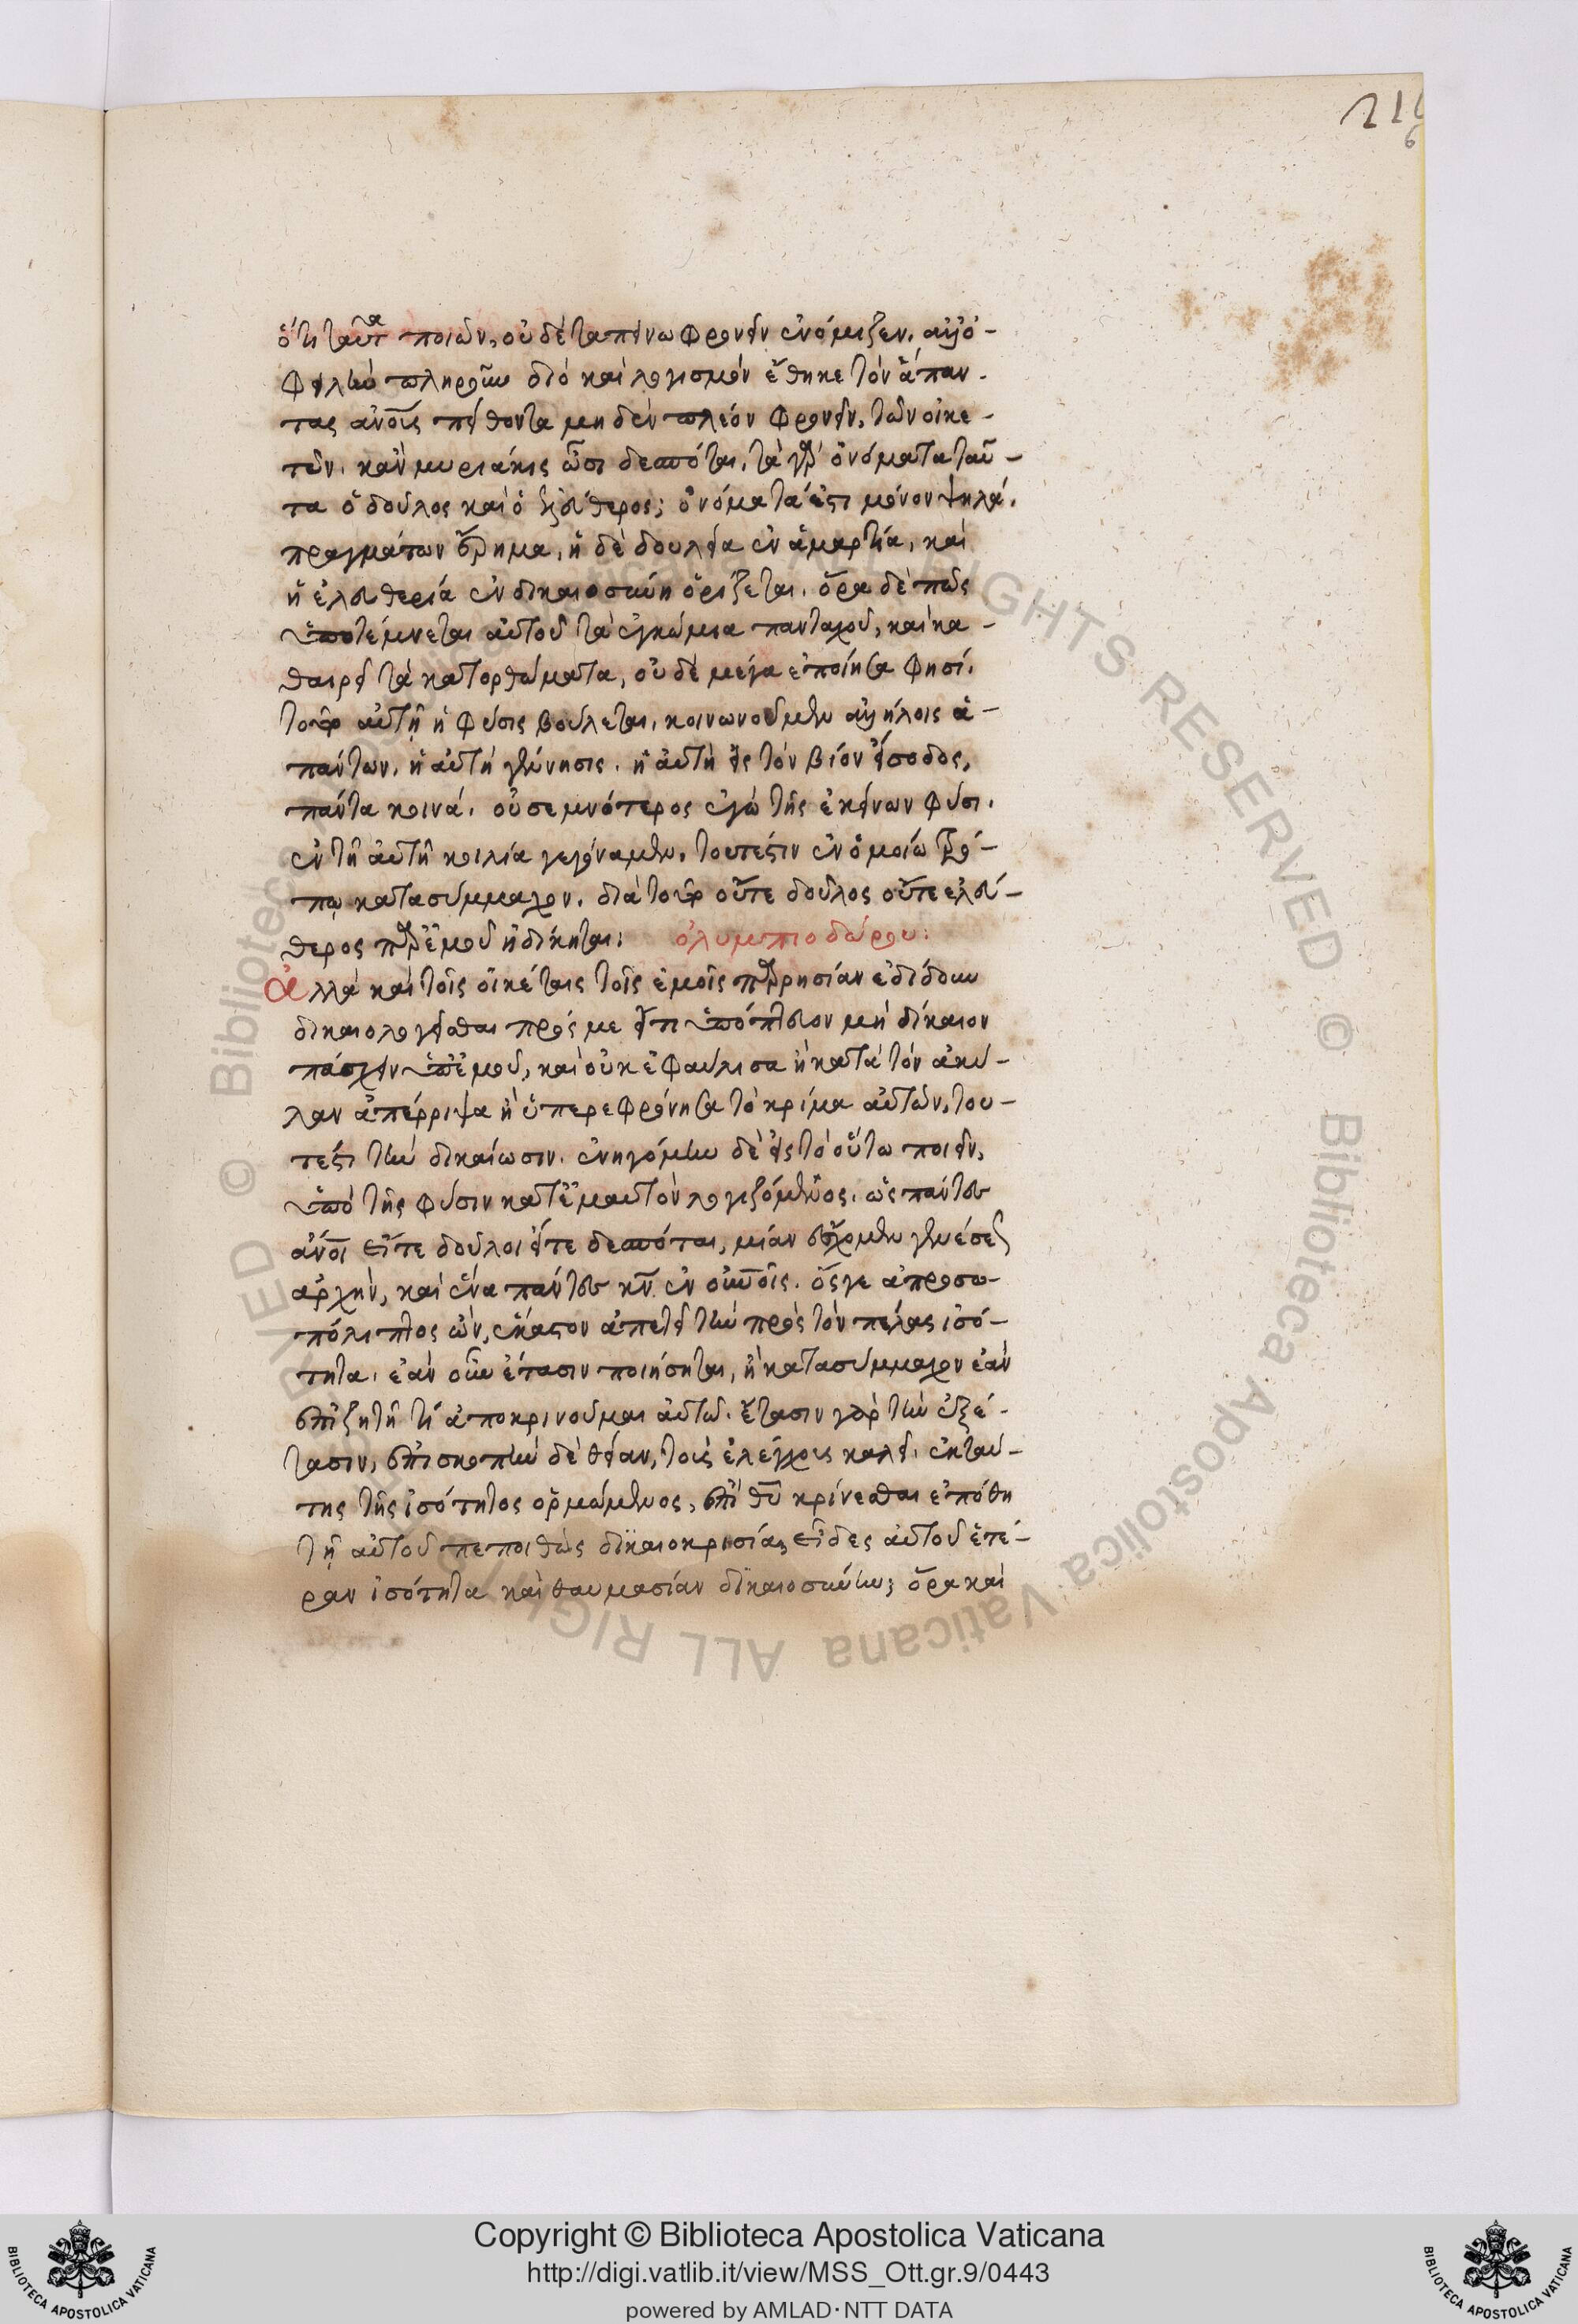 216
ὅτι ταῦτα ποιῶν, οὐδὲ ταπεινοφρονεῖν ἐνόμιζεν, ἀλλ' ὀ-
φειλὴν πληροῦν διὸ καὶ λογισμὸν ἔθηκε τὸν ἅπαν-
τας ἀνους πείθοντα μηδὲν πλέον φρονεῖν, τῶν οἰκε-
τῶν. κἂν μυριάκις ὦσι δεσπόται, τὰ γὰρ ὀνόματα ταῦ-
τα ὁ δοῦλος καὶ ὁ ἐλεύθερος; ὀνόματά ἐστι μόνον ψιλά.
πραγμάτων ἔρημα, ἡ δὲ δουλεία ἐν ἁμαρτία, καὶ
ἡ ἐλευθερία ἐν δικαιοσύνη ὁρίζεται. ὅρα δὲ πῶς
ὑποτέμνεται αὐτοῦ τὰ ἐγκώμια πανταχοῦ, καὶ κα-
θαιρεῖ τὰ κατορθώματα, οὐδὲ μέγα ἐποίησα φησί.
τοῦτο αὐτὴ ἡ φύσις βούλεται, κοινωνοῦμεν ἀλλήλοις ἁ-
πάντων. ἡ αὐτὴ γέννησις. ἡ αὐτὴ εἰς τὸν βίον εἴσοδος,
πάντα κοινά. οὐ σεμνότερος ἐγὼ τῆς ἐκείνων φύσι.
ἐν τῆ αὐτῆ κοιλία γεγόναμεν, τουτέστιν ἐν ὁμοίω τρό-
πω κατασύμμαχον. διὰ τοῦτο οὔτε δοῦλος οὔτε ἐλεύ-
θερος παρ' ἐμοῦ ἠδίκηται: ὀλυμπιοδώρου:
ἀλλὰ καὶ τοῖς οἰκέταις τοῖς ἐμοῖς παρρησίαν ἐδίδουν
δικαιολογεῖσθαι πρός με εἴτι ὑπόπτευον μὴ δίκαιον
πάσχειν ὑπ' ἐμοῦ, καὶ οὐκ ἐφαύλισα ἢ κατὰ τὸν ἀκύ-
λαν ἀπέρριψα ἢ ὑπερεφρόνησα τὸ κρίμα αὐτῶν, του-
τέστι τὴν δικαίωσιν. ἐνηγόμην δὲ εἰς τὸ οὕτω ποιεῖν,
ὑπὸ τῆς φύσιν κατ' ἐμαυτὸν λογιζόμενος. ὡς πάντες
ἄνοι εἴτε δοῦλοι εἴτε δεσπόται, μίαν ἔχομεν γενέσεως
ἀρχὴν, καὶ ἕνα πάντες κν ἐν οὐνοῖς. ὅς γε ἀπροσω-
πόληπτος ὢν, ἕκαστον ἀπαιτεῖ τὴν πρὸς τὸν πέλας ἰσό-
τητα. ἐὰν οὖν ἔτασιν ποιήσηται, ἢ κατασύμμαχον ἐὰν
ἐπιζητῆ τί ἀποκρινοῦμαι αὐτῶ. ἔτασιν γὰρ τὴν ἐξέ-
τασιν, ἐπισκοπὴν δὲ θείαν, τοὺς ἐλέγχους καλεῖ. ἐκ ταύ-
της τῆς ἰσότητος ὁρμώμενος, ἐπὶ θῦ κρίνεσθαι ἐπόθη
τῆ αὐτοῦ πεποιθὼς δικαιοκρισία, εἶδες αὐτοῦ ἑτέ-
ραν ἰσότητα καὶ θαυμασίαν δικαιοσύνην; ὅρα καὶ
Copyright © Biblioteca Apostolica Vaticana
http://digi.vatlib.it/view/MSS_Ott.gr.9/0443
powered by AMLAD·NTT DATA